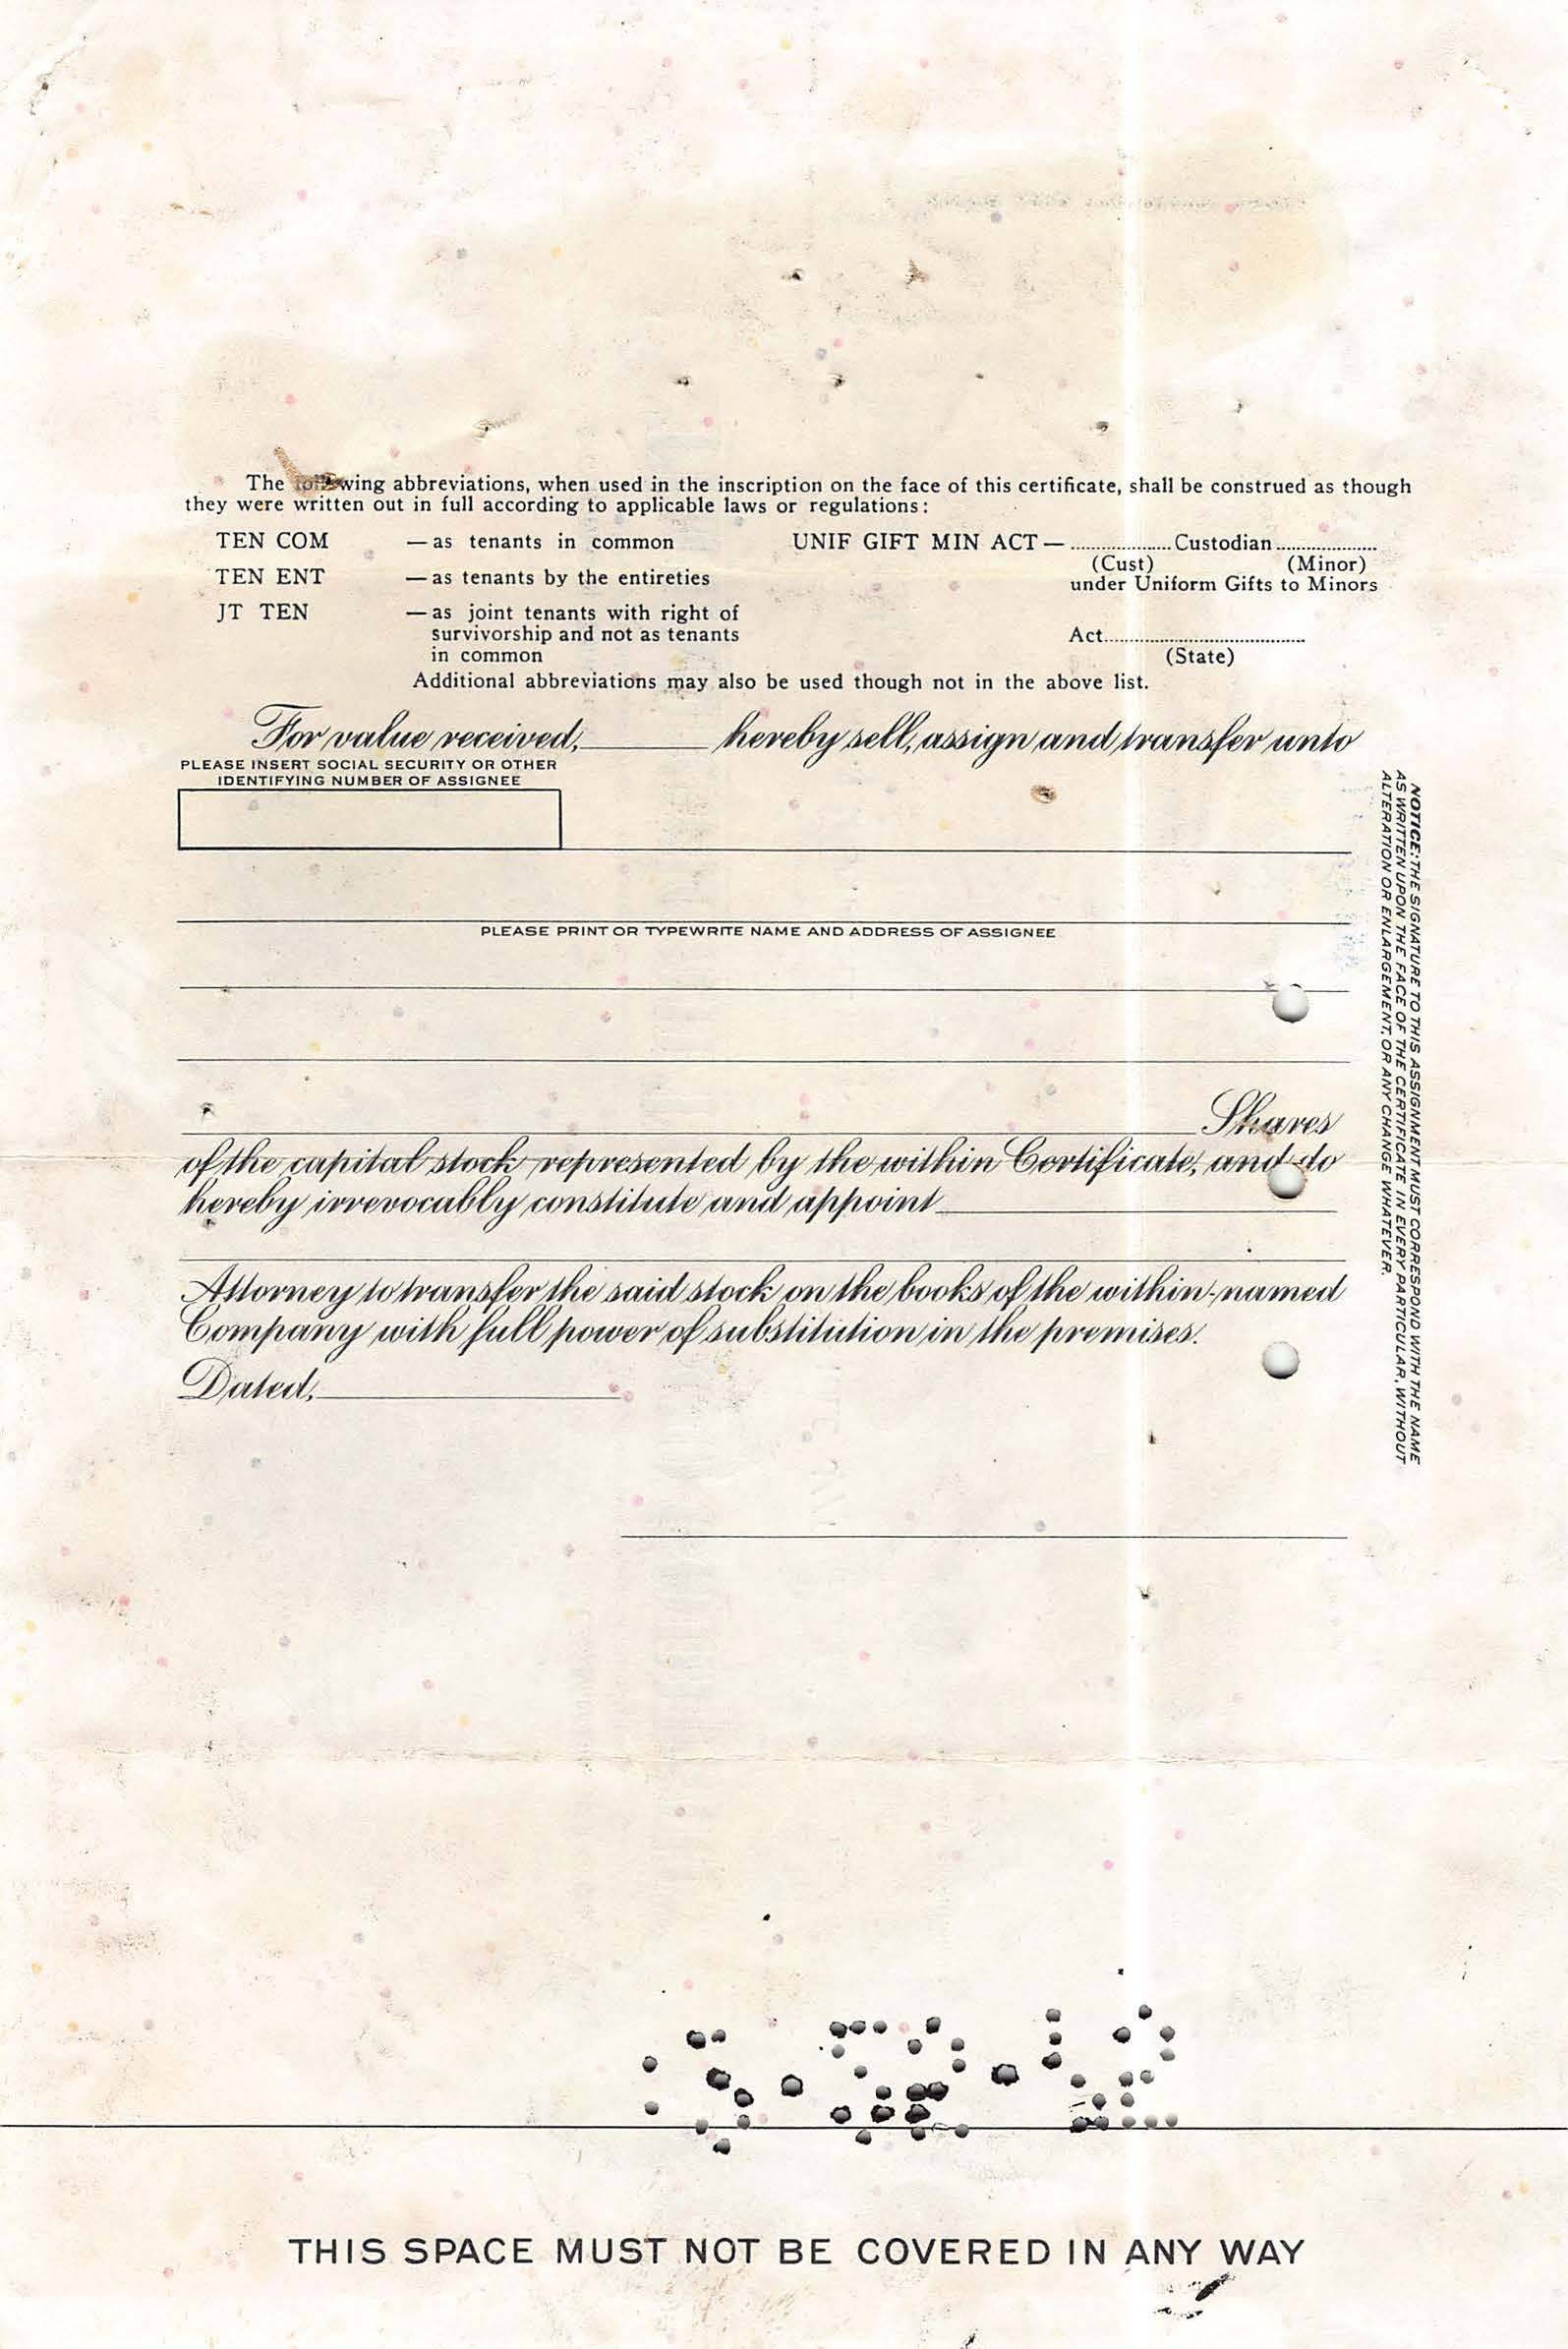 The following abbreviations, when used in the inscription on the face of this certificate, shall be construed as though
they were written out in full according to applicable laws or regulations:
TEN COM — as tenants in common
TEN ENT — as tenants by the entireties
JT TEN — as joint tenants with right of
survivorship and not as tenants
in common
UNIF GIFT MIN ACT — .................... Custodian ....................
(Cust) (Minor)
under Uniform Gifts to Minors
Act........................................
(State)
Additional abbreviations may also be used though not in the above list.
For value received, __________ hereby sell, assign and transfer unto
PLEASE INSERT SOCIAL SECURITY OR OTHER
IDENTIFYING NUMBER OF ASSIGNEE
PLEASE PRINT OR TYPEWRITE NAME AND ADDRESS OF ASSIGNEE
Shares
of the capital stock represented by the within Certificate, and do
hereby irrevocably constitute and appoint
Attorney to transfer the said stock on the books of the within-named
Company with full power of substitution in the premises.
Dated,
NOTICE: THE SIGNATURE TO THIS ASSIGNMENT MUST CORRESPOND WITH THE NAME
AS WRITTEN UPON THE FACE OF THE CERTIFICATE IN EVERY PARTICULAR, WITHOUT
ALTERATION OR ENLARGEMENT, OR ANY CHANGE WHATEVER.
THIS SPACE MUST NOT BE COVERED IN ANY WAY